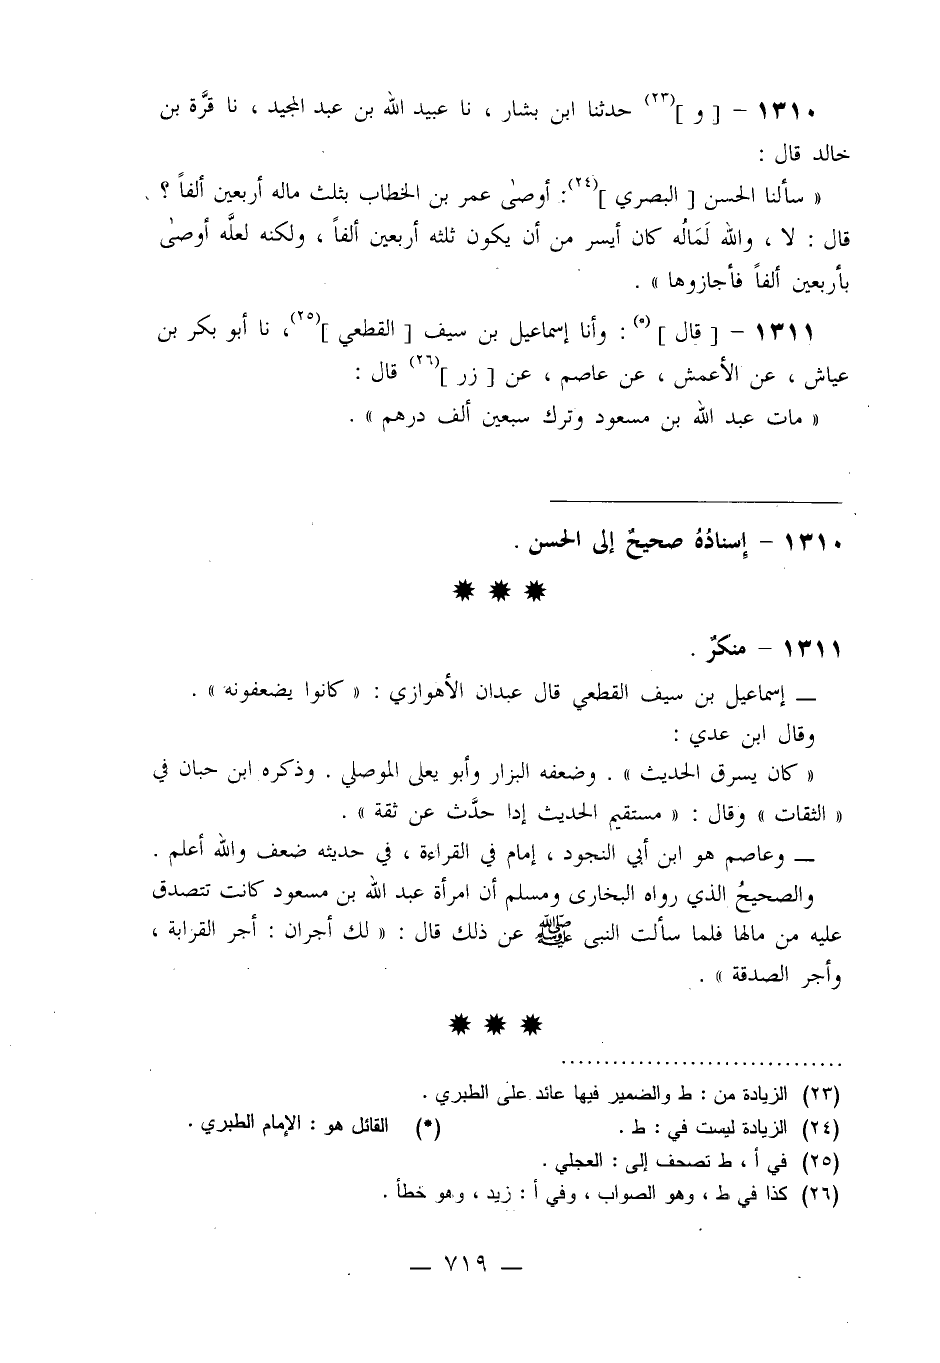 ١٣١٠ – [ و ](٢٣) حدثنا ابن بشار ، نا عبيد الله بن عبد المجيد ، نا قرَّة بن
خالد قال :
« سألنا الحسن [ البصري ](٢٤): أوصىٰ عمر بن الخطاب بثلث ماله أربعين ألفاً ؟
قال : لا ، والله لَمَالُه كان أيسر من أن يكون ثلثه أربعين ألفاً ، ولكنه لعلَّه أوصىٰ
بأربعين ألفاً فأجازوها » .
١٣١١ – [ قال ](*) : وأنا إسماعيل بن سيف [ القطعي ](٢٥)، نا أبو بكر بن
عياش ، عن الأعمش ، عن عاصم ، عن [ زر ](٢٦) قال :
« مات عبد الله بن مسعود وترك سبعين ألف درهم » .
١٣١٠ – إسنادُهُ صحيحٌ إلى الحسن .
١٣١١ – منكرٌ .
— إسماعيل بن سيف القطعي قال عبدان الأهوازي : « كانوا يضعفونه » .
وقال ابن عدي :
« كان يسرق الحديث » . وضعفه البزار وأبو يعلى الموصلي . وذكره ابن حبان في
« الثقات » وقال : « مستقيم الحديث إدا حدَّث عن ثقة » .
— وعاصم هو ابن أبي النجود ، إمام في القراءة ، في حديثه ضعف والله أعلم .
والصحيحُ الذي رواه البخارى ومسلم أن امرأة عبد الله بن مسعود كانت تتصدق
عليه من مالها فلما سألت النبى ﷺ عن ذلك قال : « لك أجران : أجر القرابة ،
وأجر الصدقة » .
(٢٣) الزيادة من : ط والضمير فيها عائد على الطبري .
(٢٤) الزيادة ليست في : ط . (*) القائل هو : الإمام الطبري .
(٢٥) في أ ، ط تصحف إلى : العجلي .
(٢٦) كذا في ط ، وهو الصواب ، وفي أ : زيد ، وهو خطأ .
— ٧١٩ —